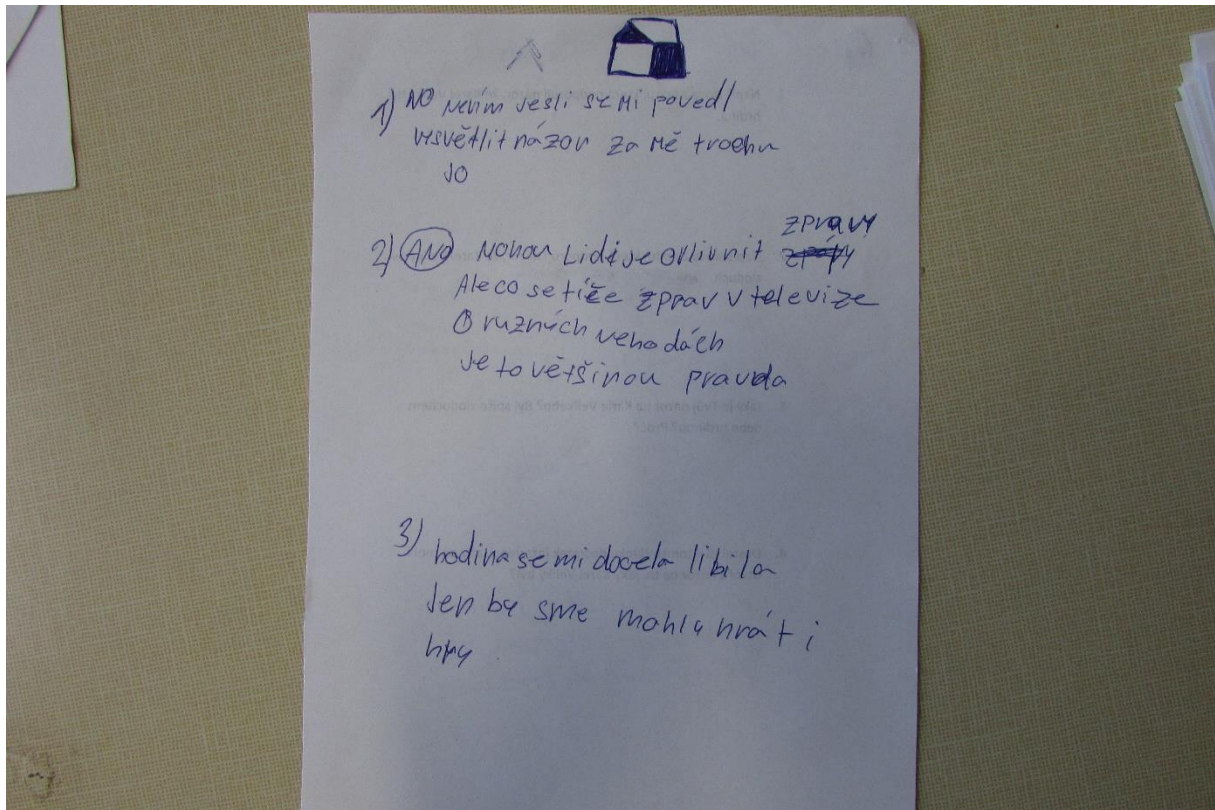 1) NO Nevím Jesli se Mi povedl
vysvětlit názor za Mě trochu
JO
2) ANO Mohou Lidi je ovlivnit zpravy
Ale co se tíče zprav v televize
O ruzných nehodách
Je to většinou pravda
3) hodina se mi docela libila
Jen by sme mohly hrát i
hry